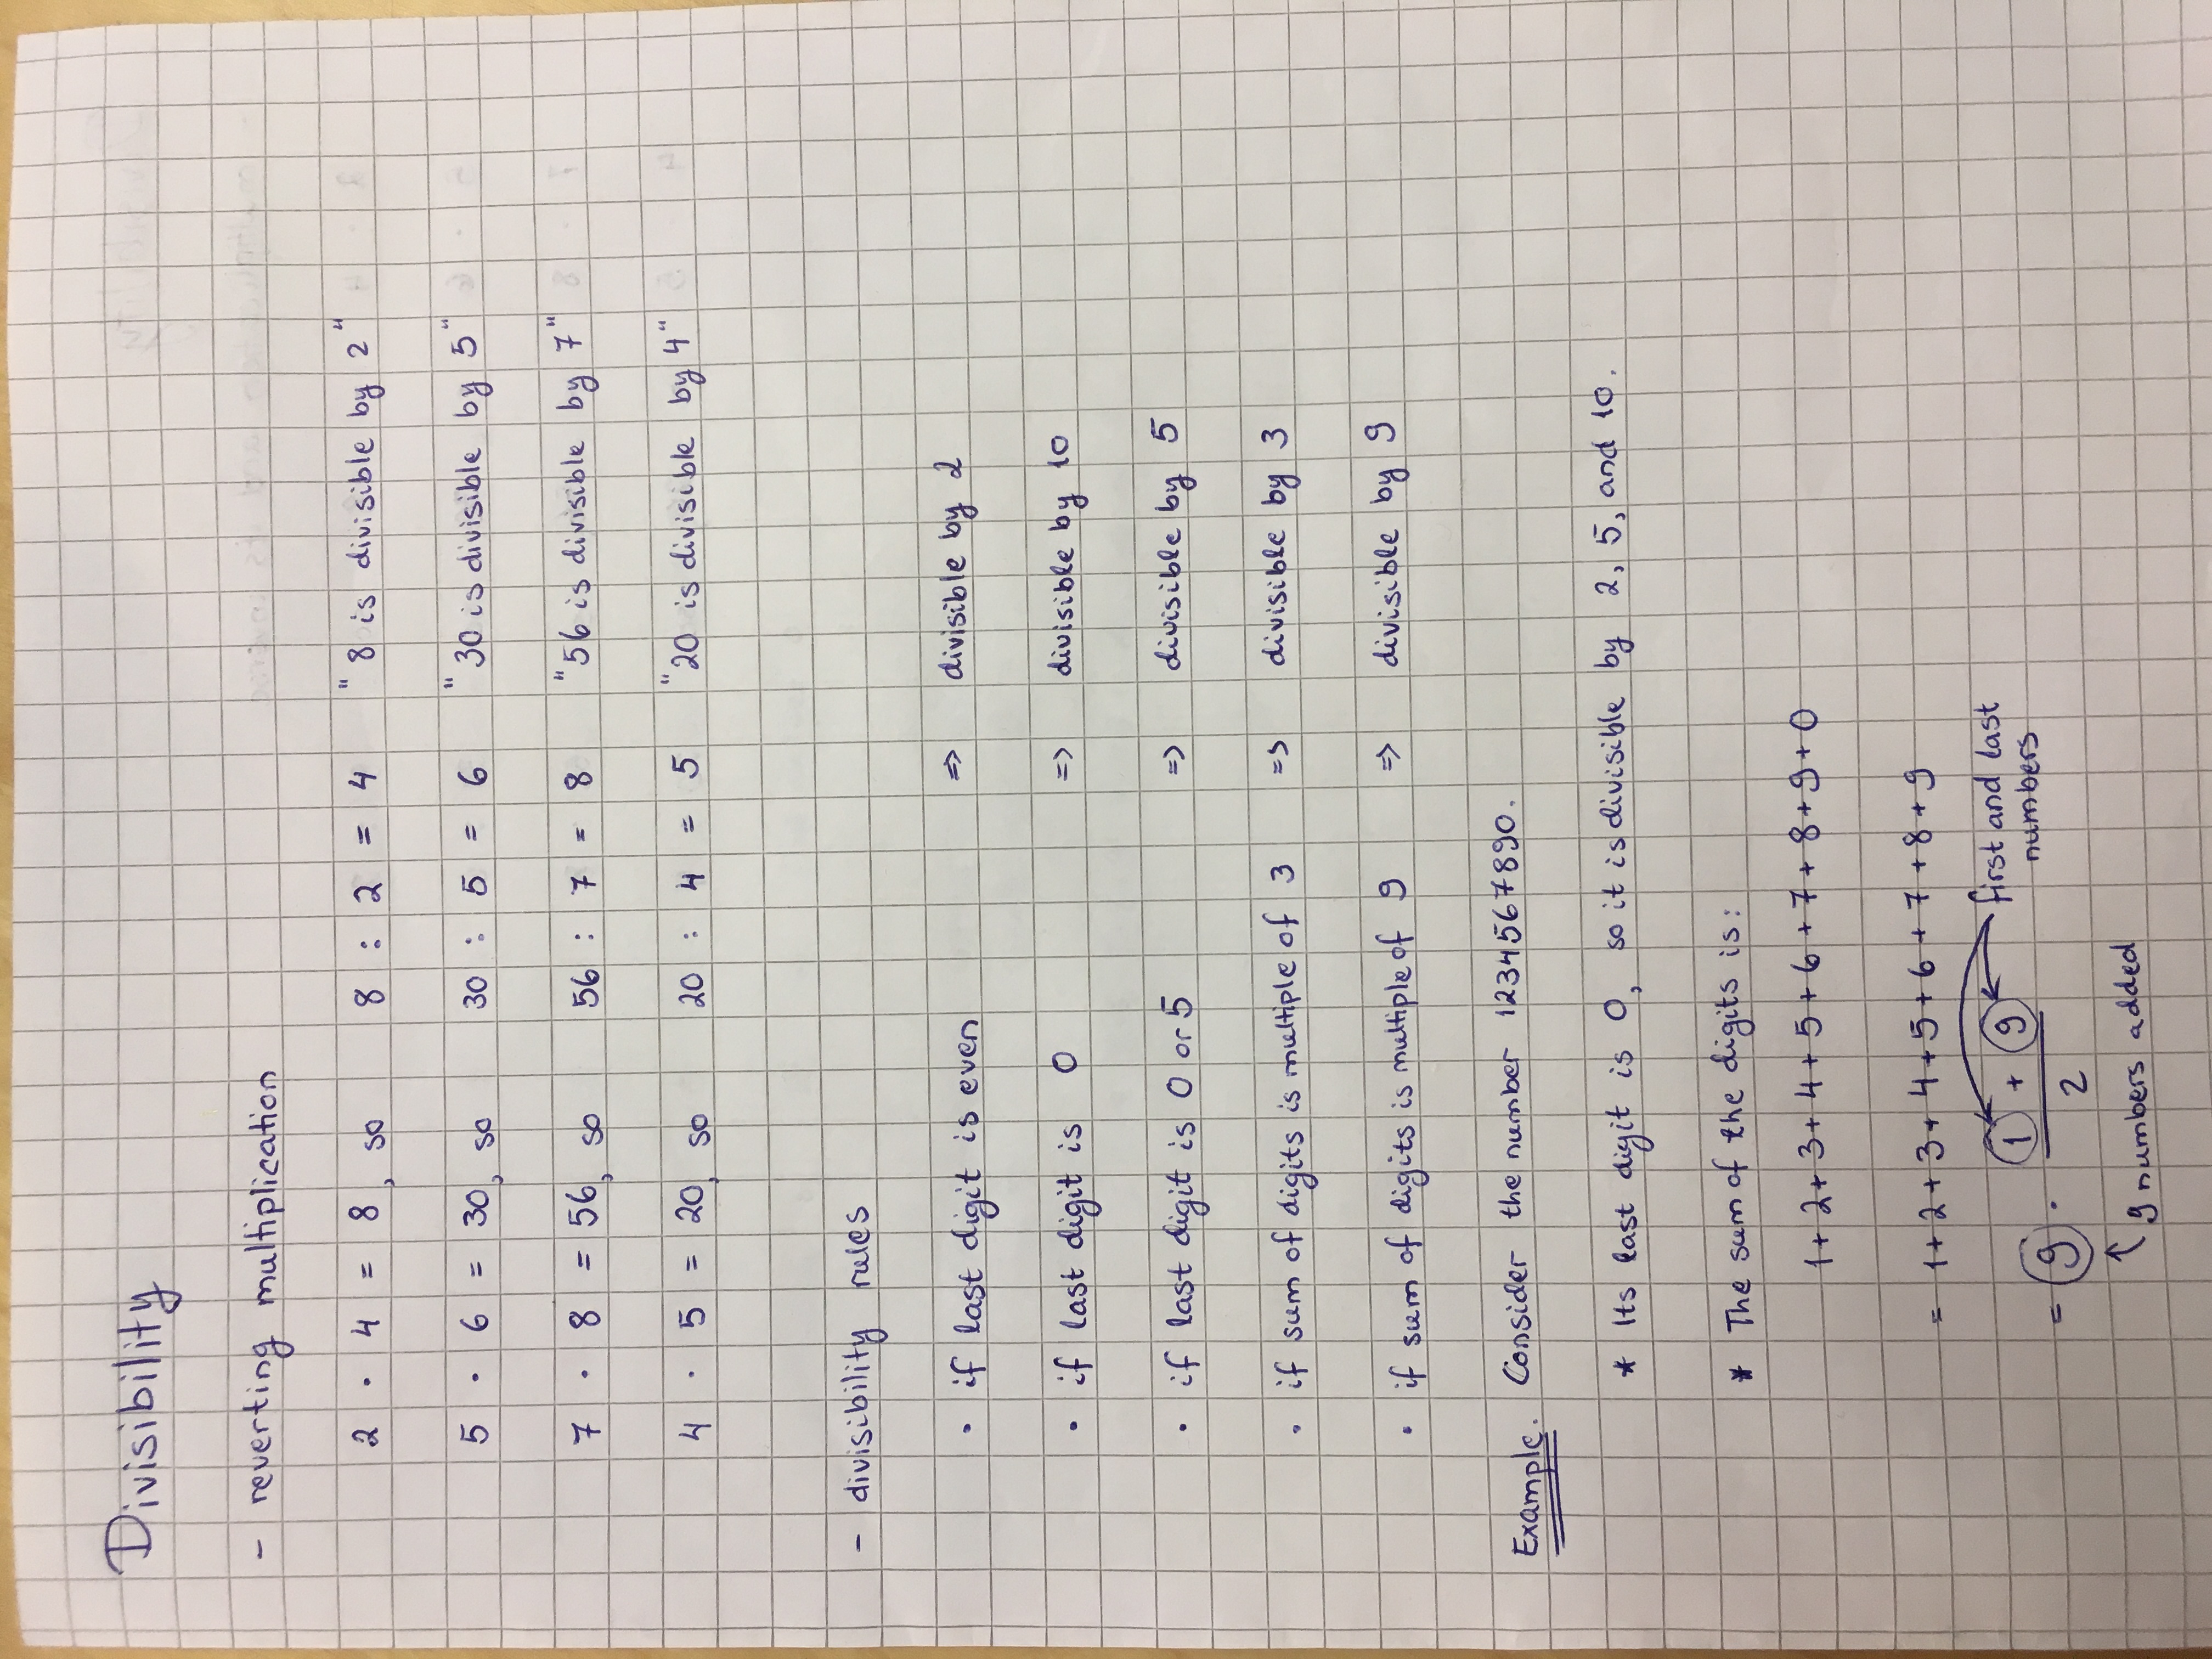 Divisibility
- reverting multiplication
2 · 4 = 8, so 8 : 2 = 4 "8 is divisible by 2"
5 · 6 = 30, so 30 : 5 = 6 "30 is divisible by 5"
7 · 8 = 56, so 56 : 7 = 8 "56 is divisible by 7"
4 · 5 = 20, so 20 : 4 = 5 "20 is divisible by 4"
- divisibility rules
· if last digit is even => divisible by 2
· if last digit is 0 => divisible by 10
· if last digit is 0 or 5 => divisible by 5
· if sum of digits is multiple of 3 => divisible by 3
· if sum of digits is multiple of 9 => divisible by 9
Example. Consider the number 1234567890.
* Its last digit is 0, so it is divisible by 2, 5, and 10.
* The sum of the digits is:
1+2+3+4+5+6+7+8+9+0
= 1+2+3+4+5+6+7+8+9
= 9 · (1 + 9)/2
first and last
numbers
9 numbers added